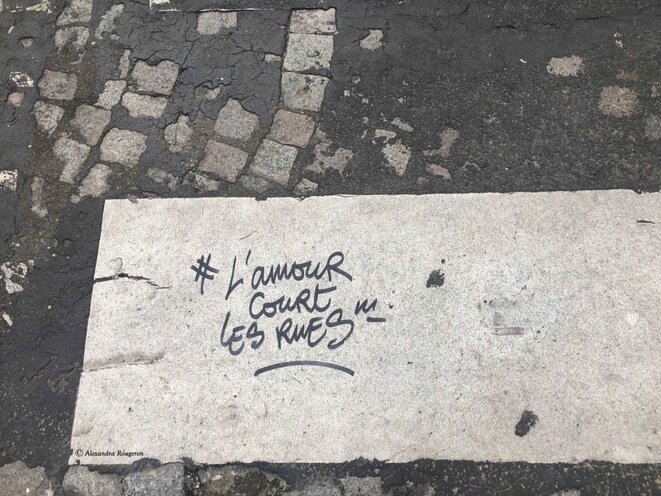 # L'amour
court
LES RUES...
© Alexandra Rougeron